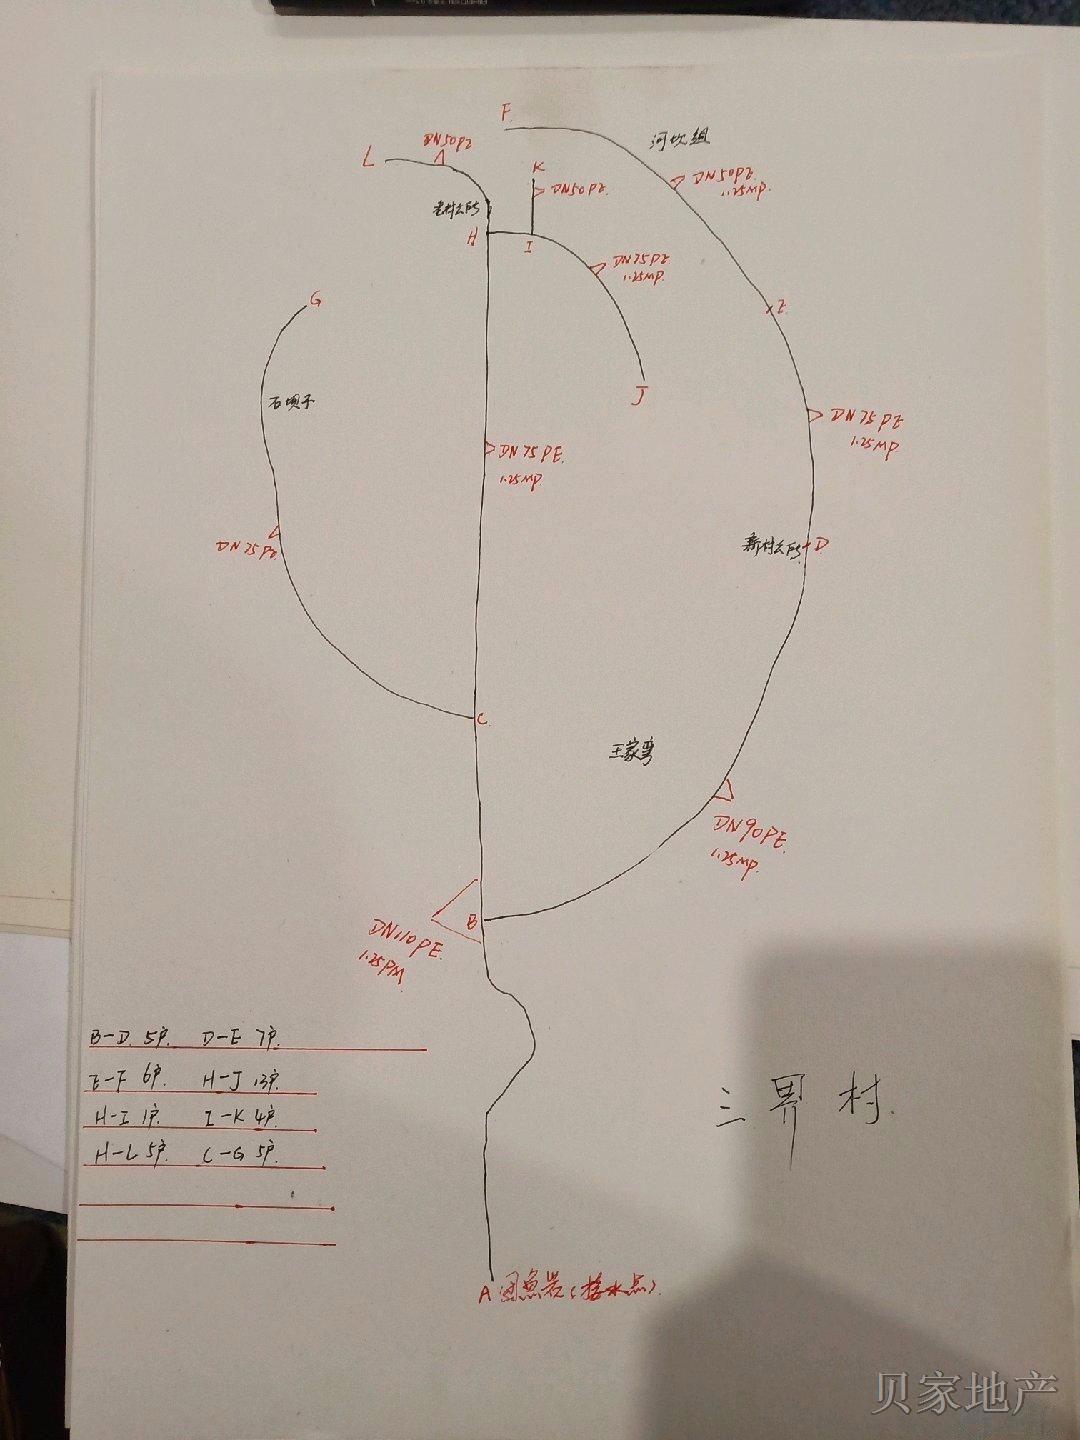 F
河坎组
DN50PE
L
K
DN50PE
DN50PE
1.25MP.
老村公所
H
I
DN75PE
1.25MP.
G
E
J
石坝子
DN75PE
1.25MP
DN75PE.
1.25MP.
DN75PE.
新村公所
D
C
王家湾
DN90PE.
1.25MP.
B
DN110PE.
1.25PM
B-D. 5户. D-E 7户.
E-F 6户. H-J 13户.
H-I 1户. I-K 4户.
H-L 5户. C-G 5户.
三界村.
A 团鱼岩(接水点).
贝家地产